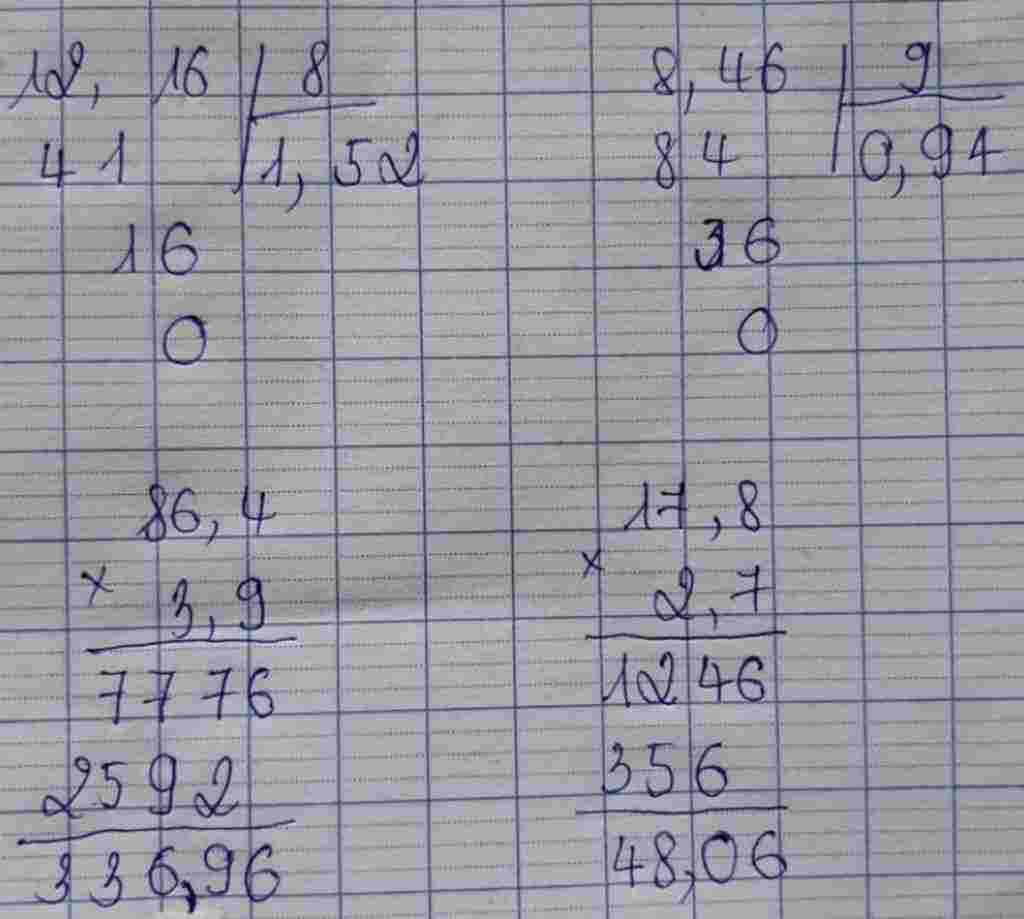 12, 16 8
41 1,52
16
0
8,46 9
84 0,94
36
0
86,4
x 3,9
7776
2592
336,96
17,8
x 2,7
1246
356
48,06